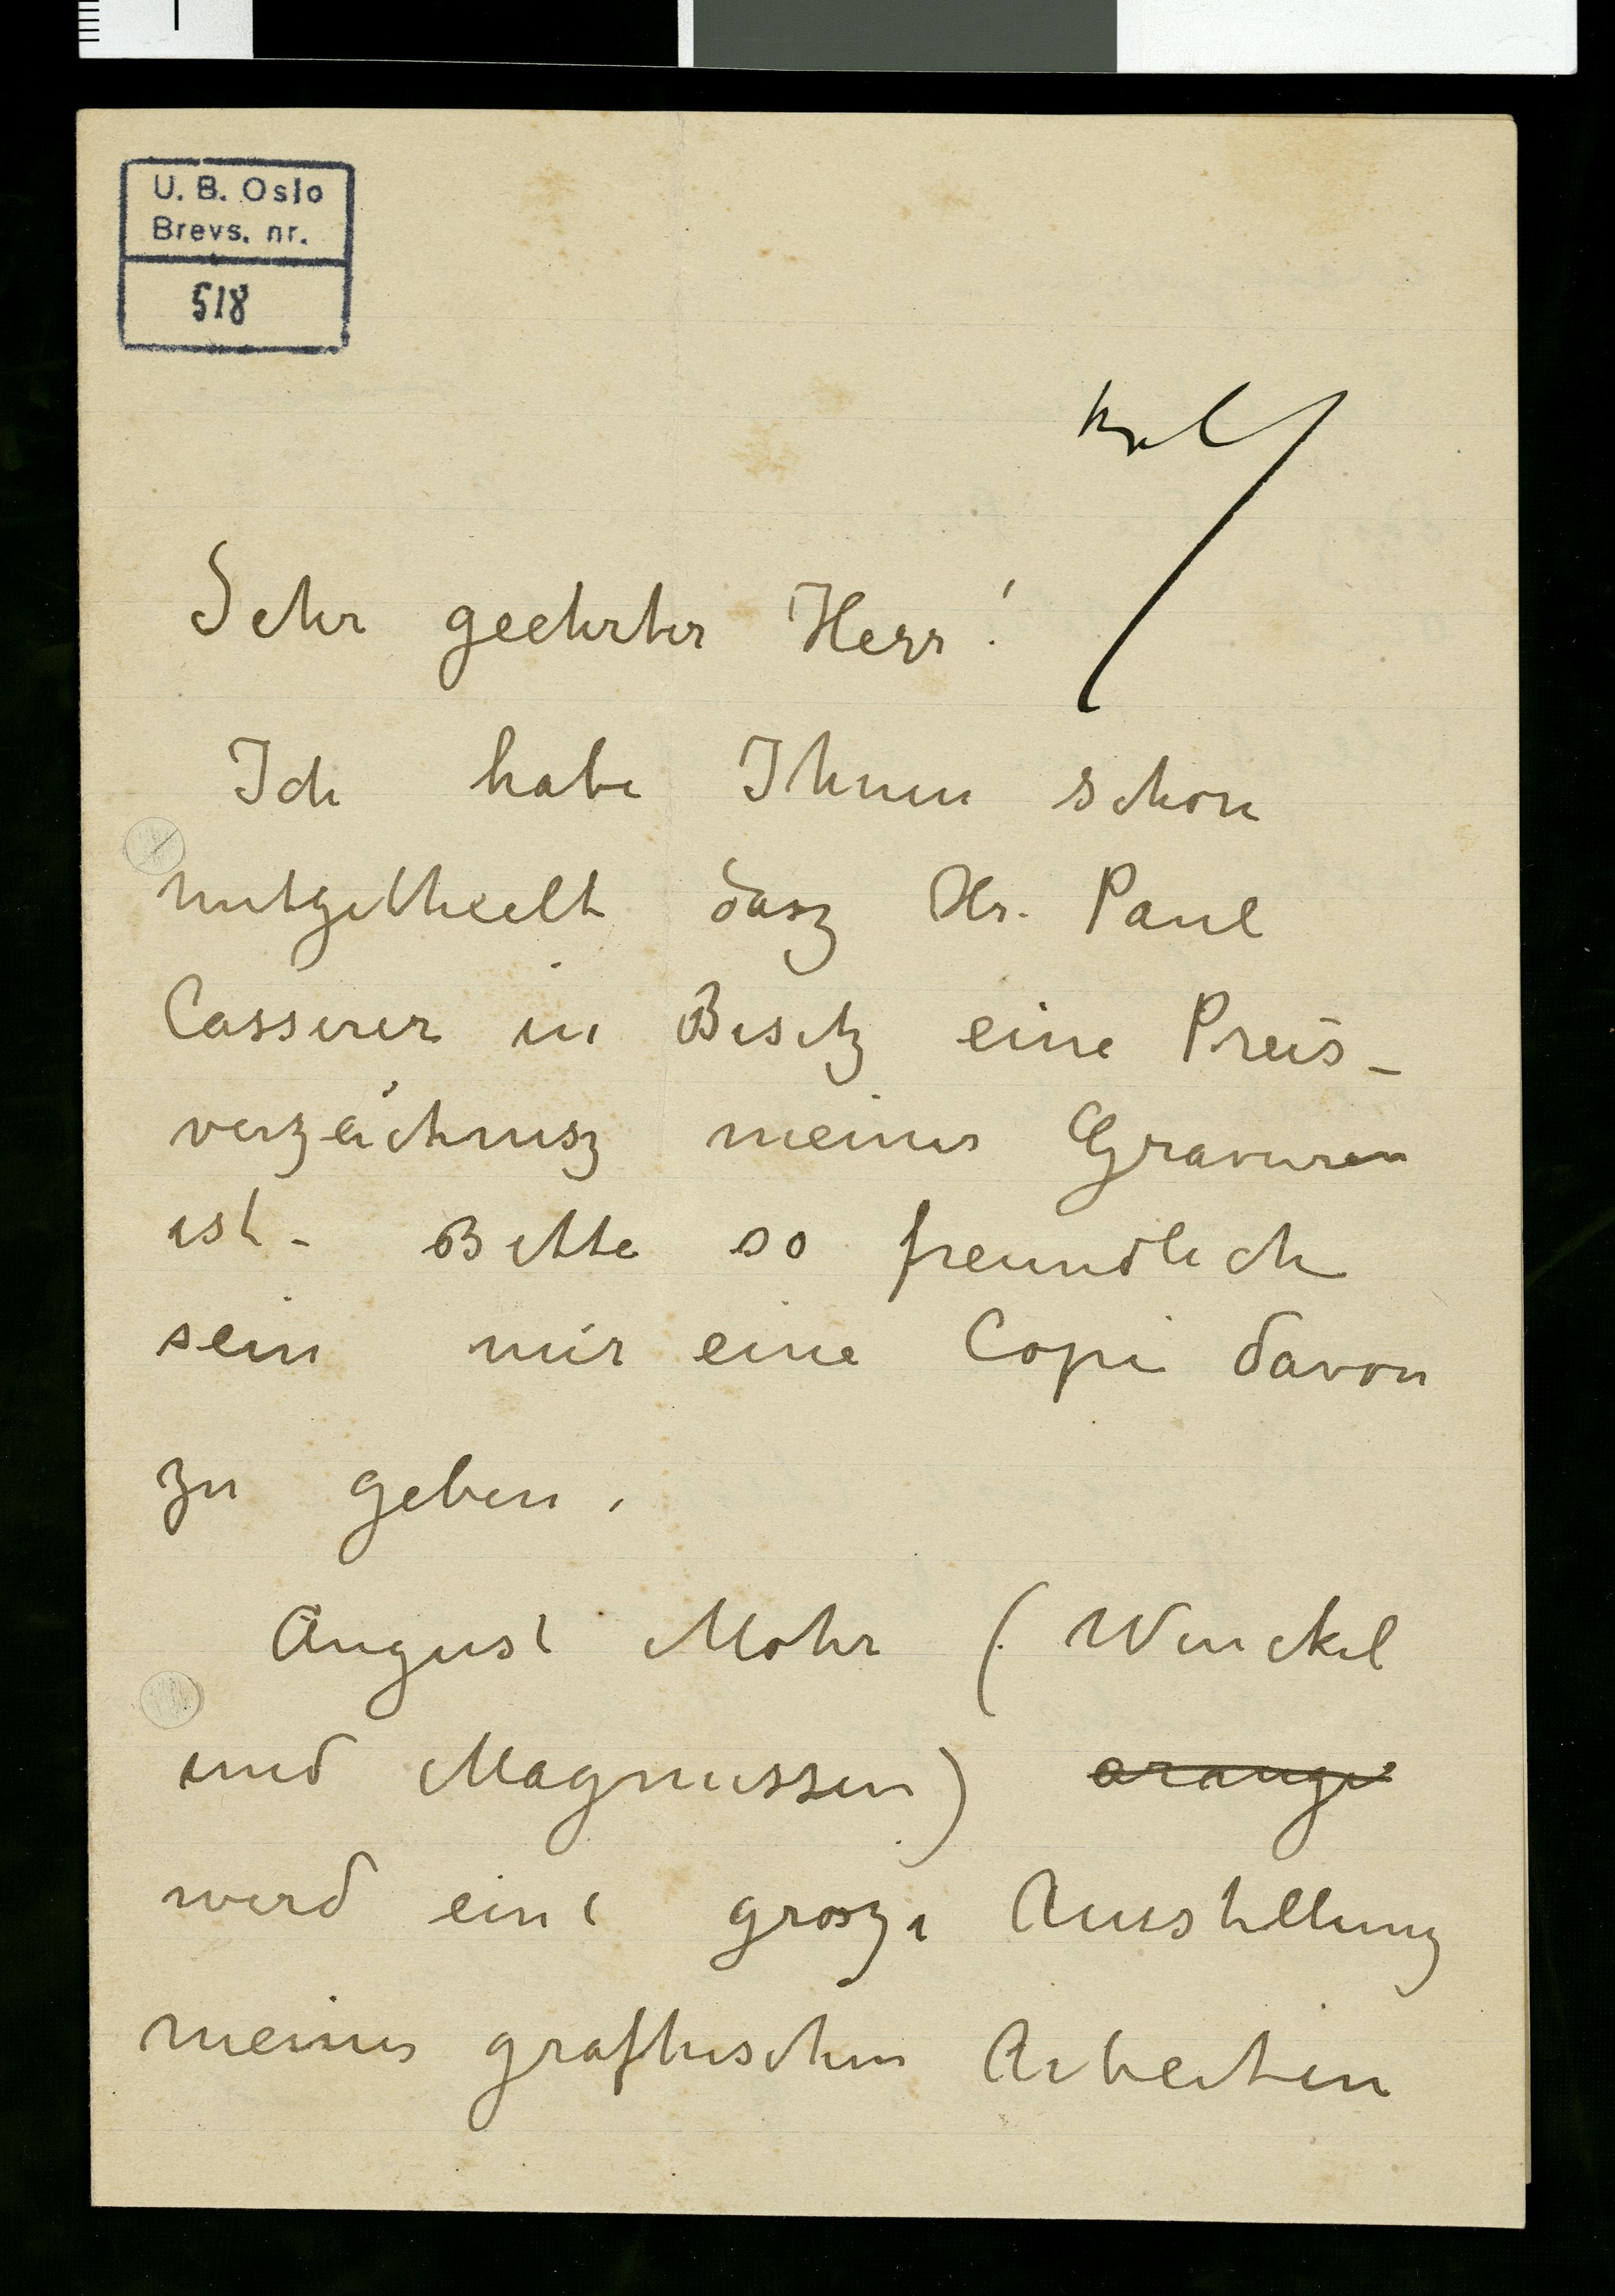 U. B. Oslo
Brevs. nr.
518
Sehr geehrter Herr!
Ich habe Ihnen schon
mitgetheilt dasz Hr. Paul
Casserer in Besitz eine Preis-
verzeichnisz meiner Gravuren
ist- Bitte so freundlich
sein mir eine Copi davon
zu geben.
August Mohr (Winckel
und Magnussen) arange
werd eine grosze Ausstellung
meiner grafhischen Arbeiten